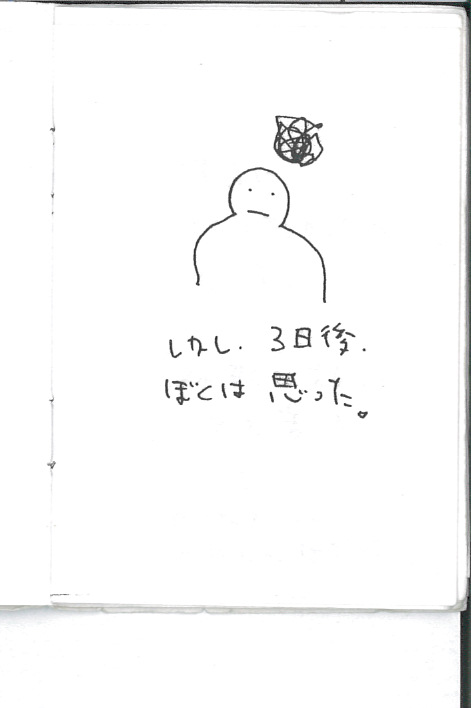 しかし、3日後、
ぼくは思った。